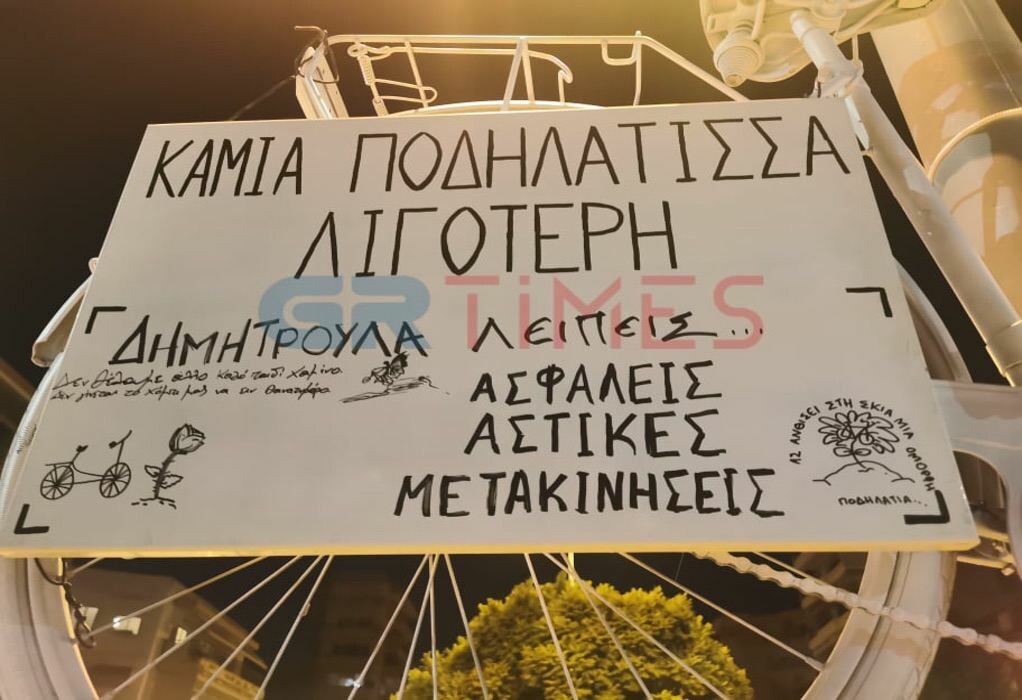 ΚΑΜΙΑ ΠΟΔΗΛΑΤΙΣΣΑ
ΛΙΓΟΤΕΡΗ
GRTiMES
ΔΗΜΗΤΡΟΥΛΑ ΛΕΙΠΕΙΣ...
Δεν θέλουμε άλλο καλό παιδί χαμένο.
Δεν το χώμα μας να
ΑΣΦΑΛΕΙΣ
ΑΣΤΙΚΕΣ
ΜΕΤΑΚΙΝΗΣΕΙΣ
ΑΣ ΑΝΘΙΣΕΙ ΣΤΗ ΣΚΙΑ ΜΙΑ ΟΜΟΡΦΗ
ΠΟΔΗΛΑΤΙΑ...